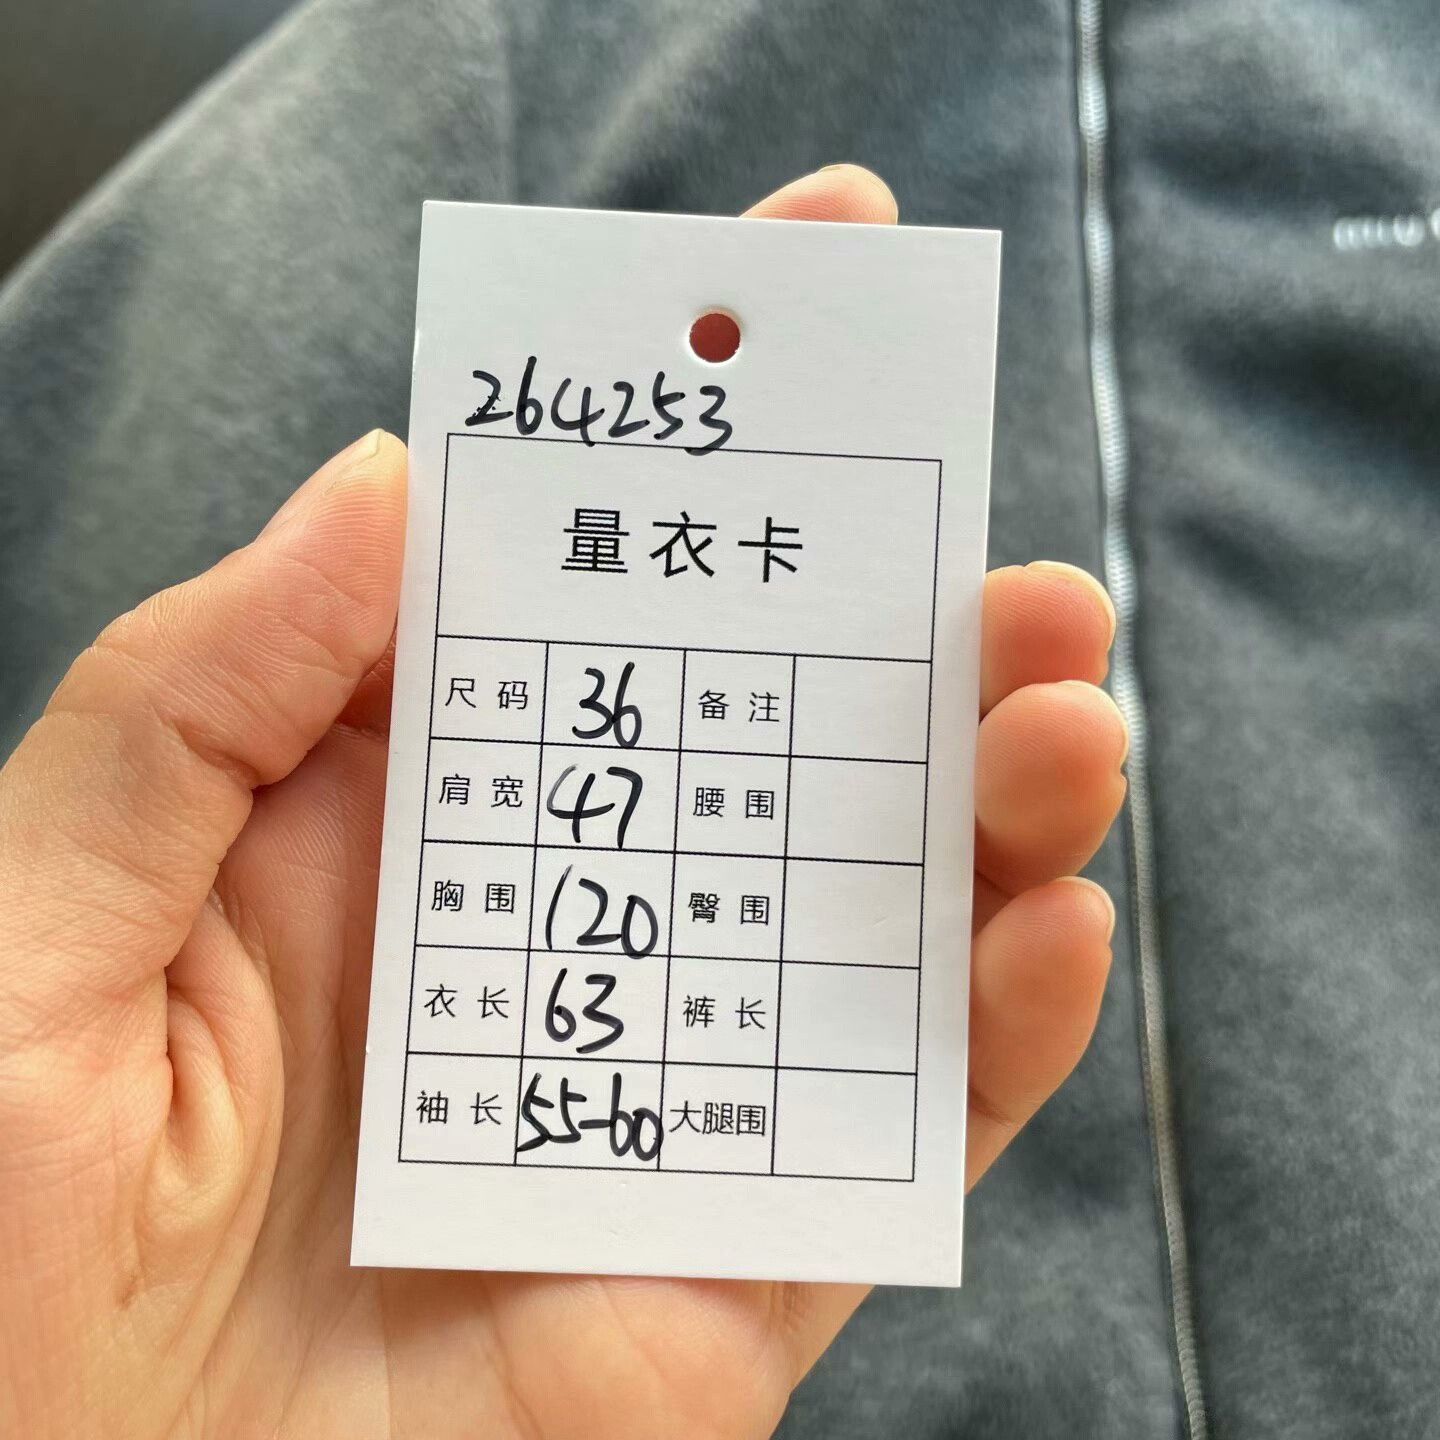 264253
量衣卡
尺码 36 备注
肩宽 47 腰围
胸围 120 臀围
衣长 63 裤长
袖长 55-60 大腿围